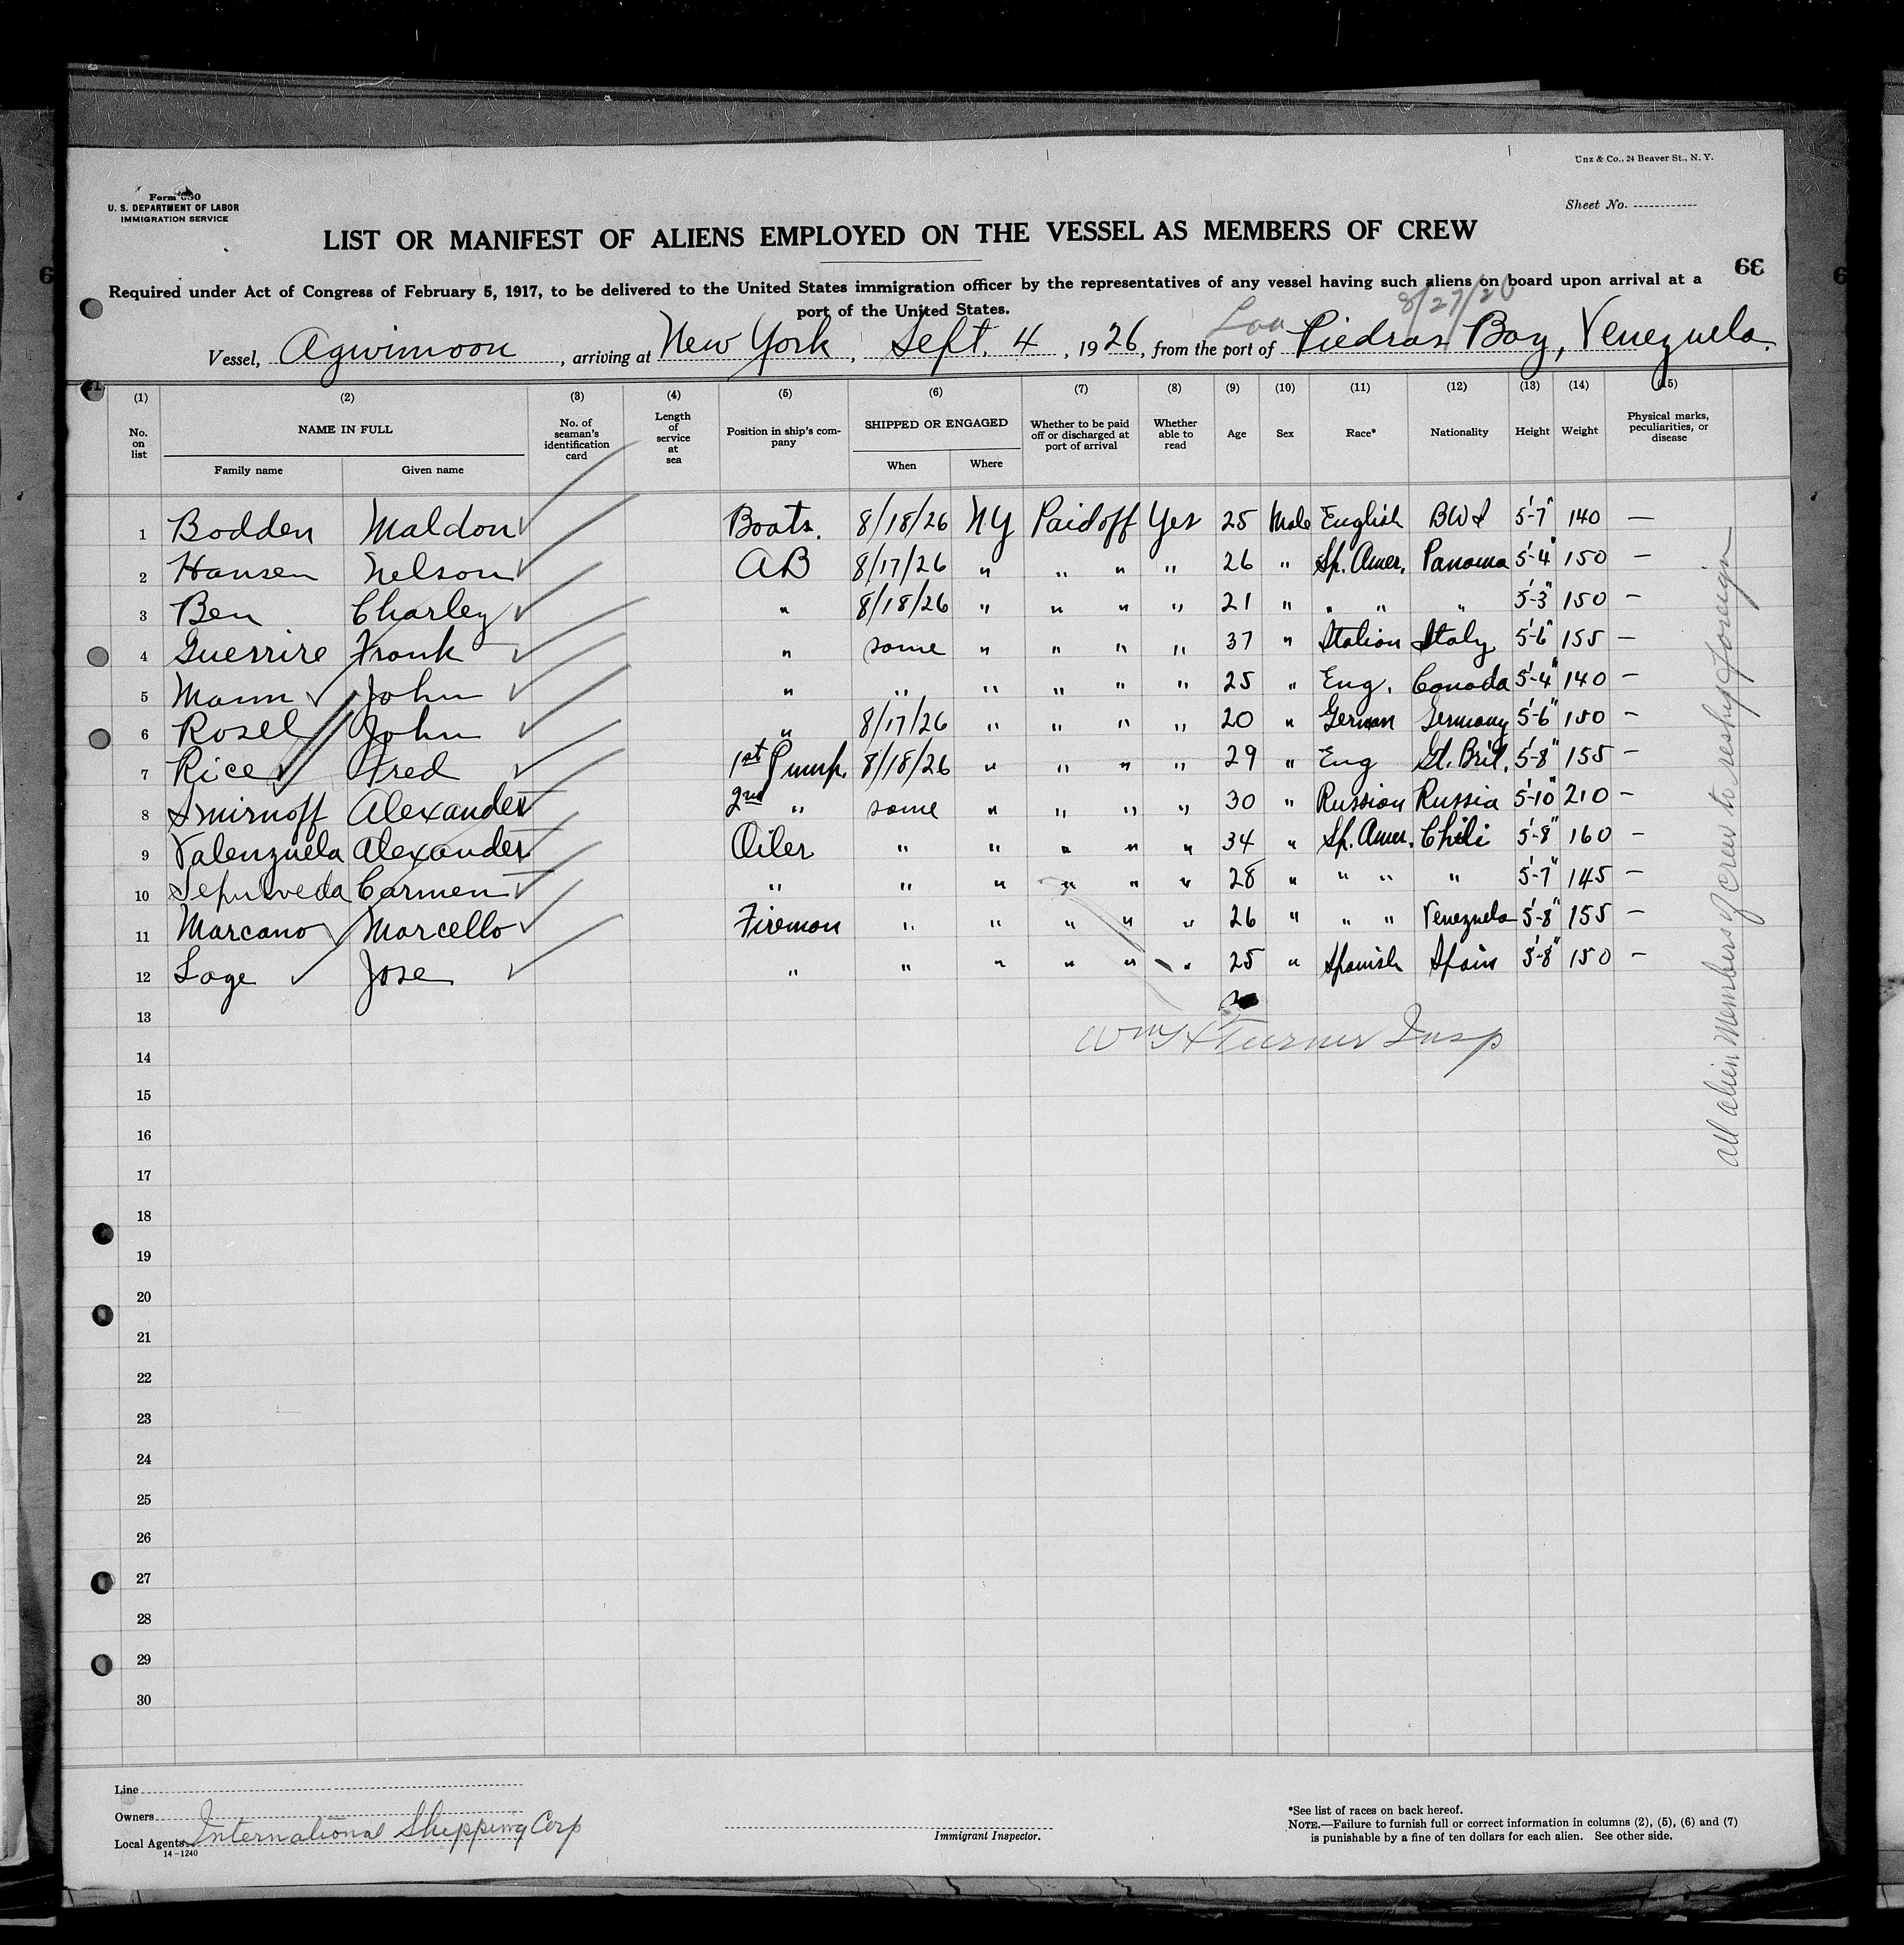 Unz & Co., 24 Beaver St., N. Y.
U. S. DEPARTMENT OF LABOR
IMMIGRATION SERVICE
Sheet No.
LIST OR MANIFEST OF ALIENS EMPLOYED ON THE VESSEL AS MEMBERS OF CREW
Required under Act of Congress of February 5, 1917, to be delivered to the United States immigration officer by the representatives of any vessel having such aliens on board upon arrival at a
port of the United States.
Vessel, Agwimoon, arriving at New York, Sept. 4, 1926, from the port of Piedras Bay, Venezuela.
(1) (2) (3) (4) (5) (6) (7) (8) (9) (10) (11) (12) (13) (14) (15)
No. on list NAME IN FULL No. of seaman's identification card Length of service at sea Position in ship's company SHIPPED OR ENGAGED Whether to be paid off or discharged at port of arrival Whether able to read Age Sex Race* Nationality Height Weight Physical marks, peculiarities, or disease
Family name Given name When Where
1 Bodden Maldon Boats. 8/18/26 NY Paid off Yes 25 Male English BWI 5'-7" 140 —
2 Hansen Nelson AB 8/17/26 " " " " 26 " Sp. Amer. Panama 5'-4" 150 —
3 Ben Charley " 8/18/26 " " " " 21 " " " " 5'-3" 150 —
4 Guerrire Frank " same " " " " 37 " Italian Italy 5'-6" 155 —
5 Mann John " " " " " " 25 " Eng. Canada 5'-4" 140 —
6 Rosel John " 8/17/26 " " " " 20 " German Germany 5'-6" 150 —
7 Rice Fred 1st Pump. 8/18/26 " " " " 29 " Eng Gt. Brit. 5'-8" 155 —
8 Smirnoff Alexander 2nd " same " " " " 30 " Russian Russia 5'-10" 210 —
9 Valenzuela Alexander Oiler " " " " " 34 " Sp. Amer. Chili 5'-8" 160 —
10 Sepulveda Carmen " " " " " " 28 " " " " 5'-7" 145 —
11 Marcano Marcello Fireman " " " " " 26 " " " Venezuela 5'-8" 155 —
12 Lage Jose " " " " " " 25 " Spanish Spain 5'-8" 150 —
13
Wm H Turner Insp
14
15
16
17
18
19
20
21
22
23
24
25
26
27
28
29
30
all alien Members of crew to reship foreign
Line
Owners
Local Agents International Shipping Corp
14-1240
Immigrant Inspector.
*See list of races on back hereof.
NOTE.—Failure to furnish full or correct information in columns (2), (5), (6) and (7)
is punishable by a fine of ten dollars for each alien. See other side.